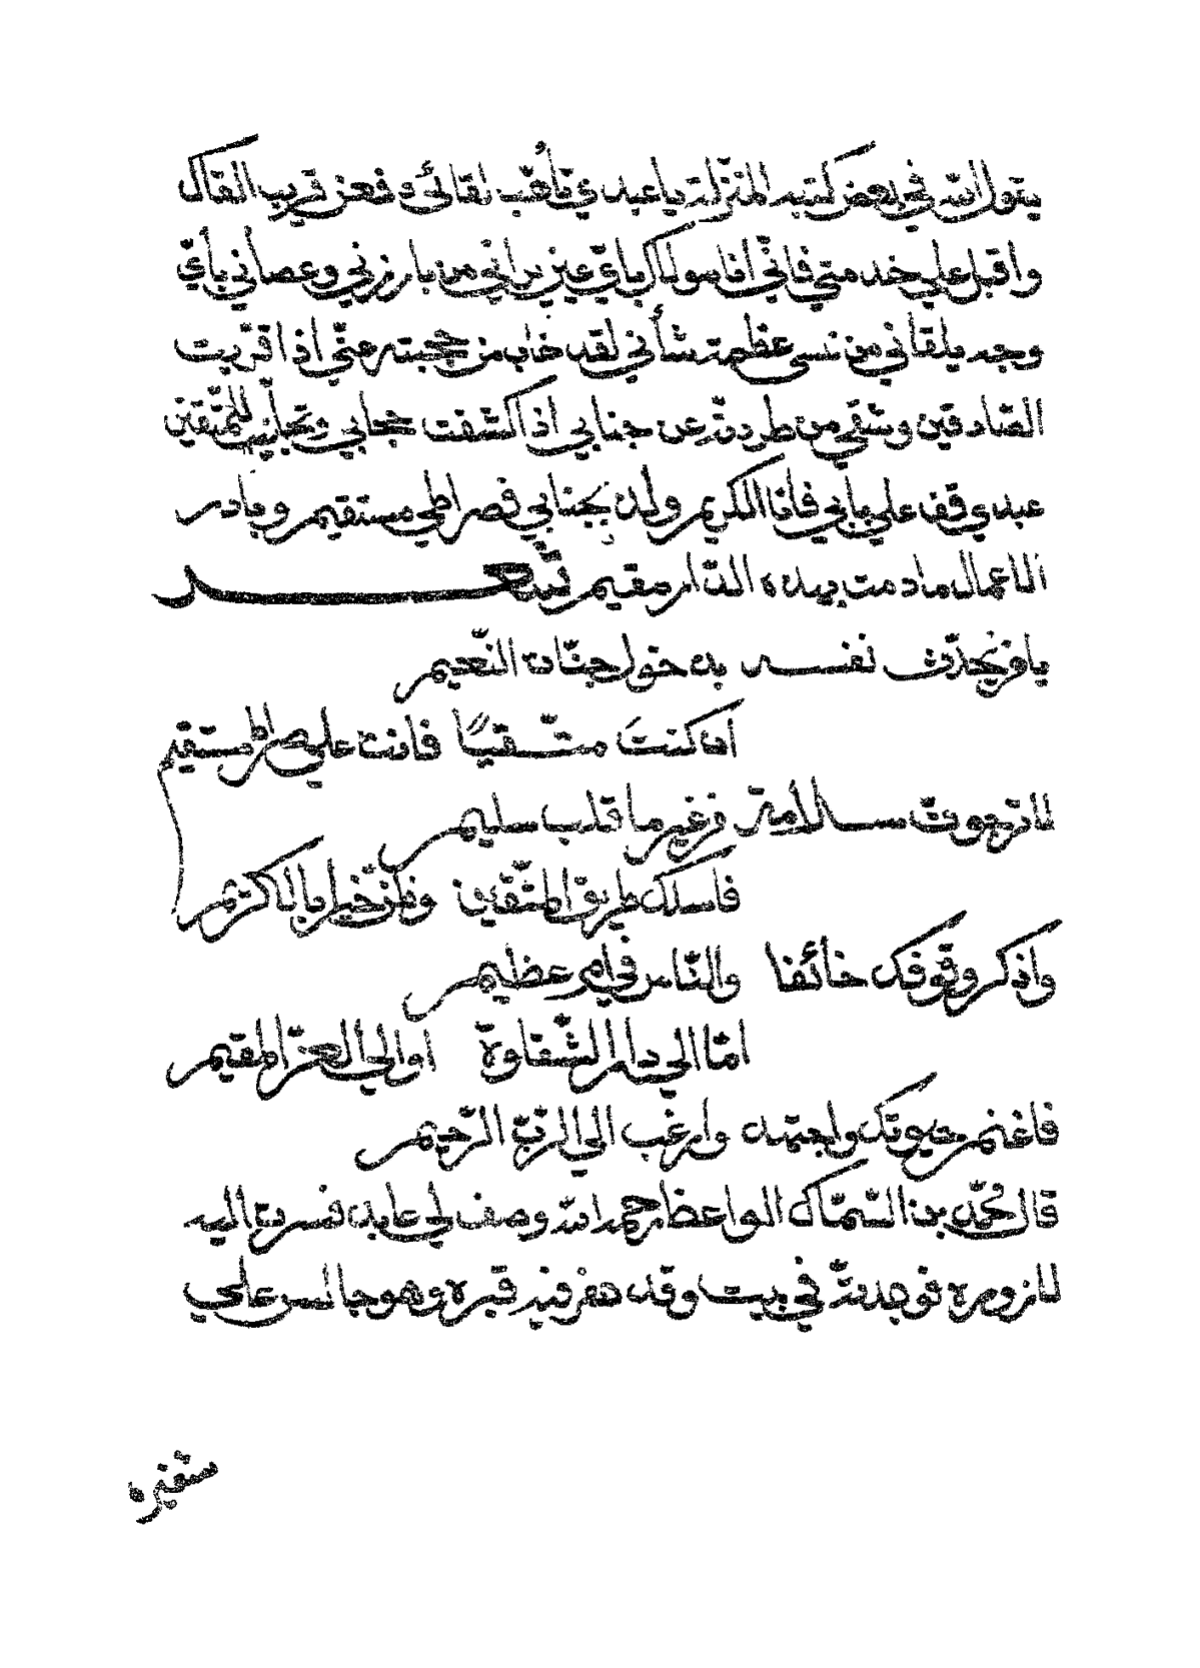 يقول الله في بعض كتبه المنزلة يا عبدي تأهب لقائي فعن قريب القاك
واقبل على خدمتي فاني انا سولاك باي عين يراني من بارزني وعصاني باي
وجه يلقاني من نسى عظمة شأني لقد خاب من حجبته عني اذا قربت
الصادقين وشقي من طردته عن جنابي اذا كشفت حجابي وتجليت للمتقين
عبدي قف على بابي فانا الكريم ولذ بجنابي فصراطي مستقيم وبادر
الاعمال ما دمت بهذه الدار مقيم شعر
يا من يحدث نفسه بدخول جنات النعيم
ان كنت متقيا فانت على صراط مستقيم
لا ترجون سلامة من غير ما قلب سليم
فاسلك طريق المتقين وظن خيرا بالكريم
واذكر وقوفك خائفا والناس في امر عظيم
اما الى دار الشقاوة او الى العز المقيم
فاغنم حيوتك واجتهد وارغب الى الرب الرحيم
قال محمد بن السماك الواعظ رحمه الله وصف لي عابد فسرت اليه
لازوره فوجدته في بيت وقد حفر فيه قبره وهو جالس على
شفيره